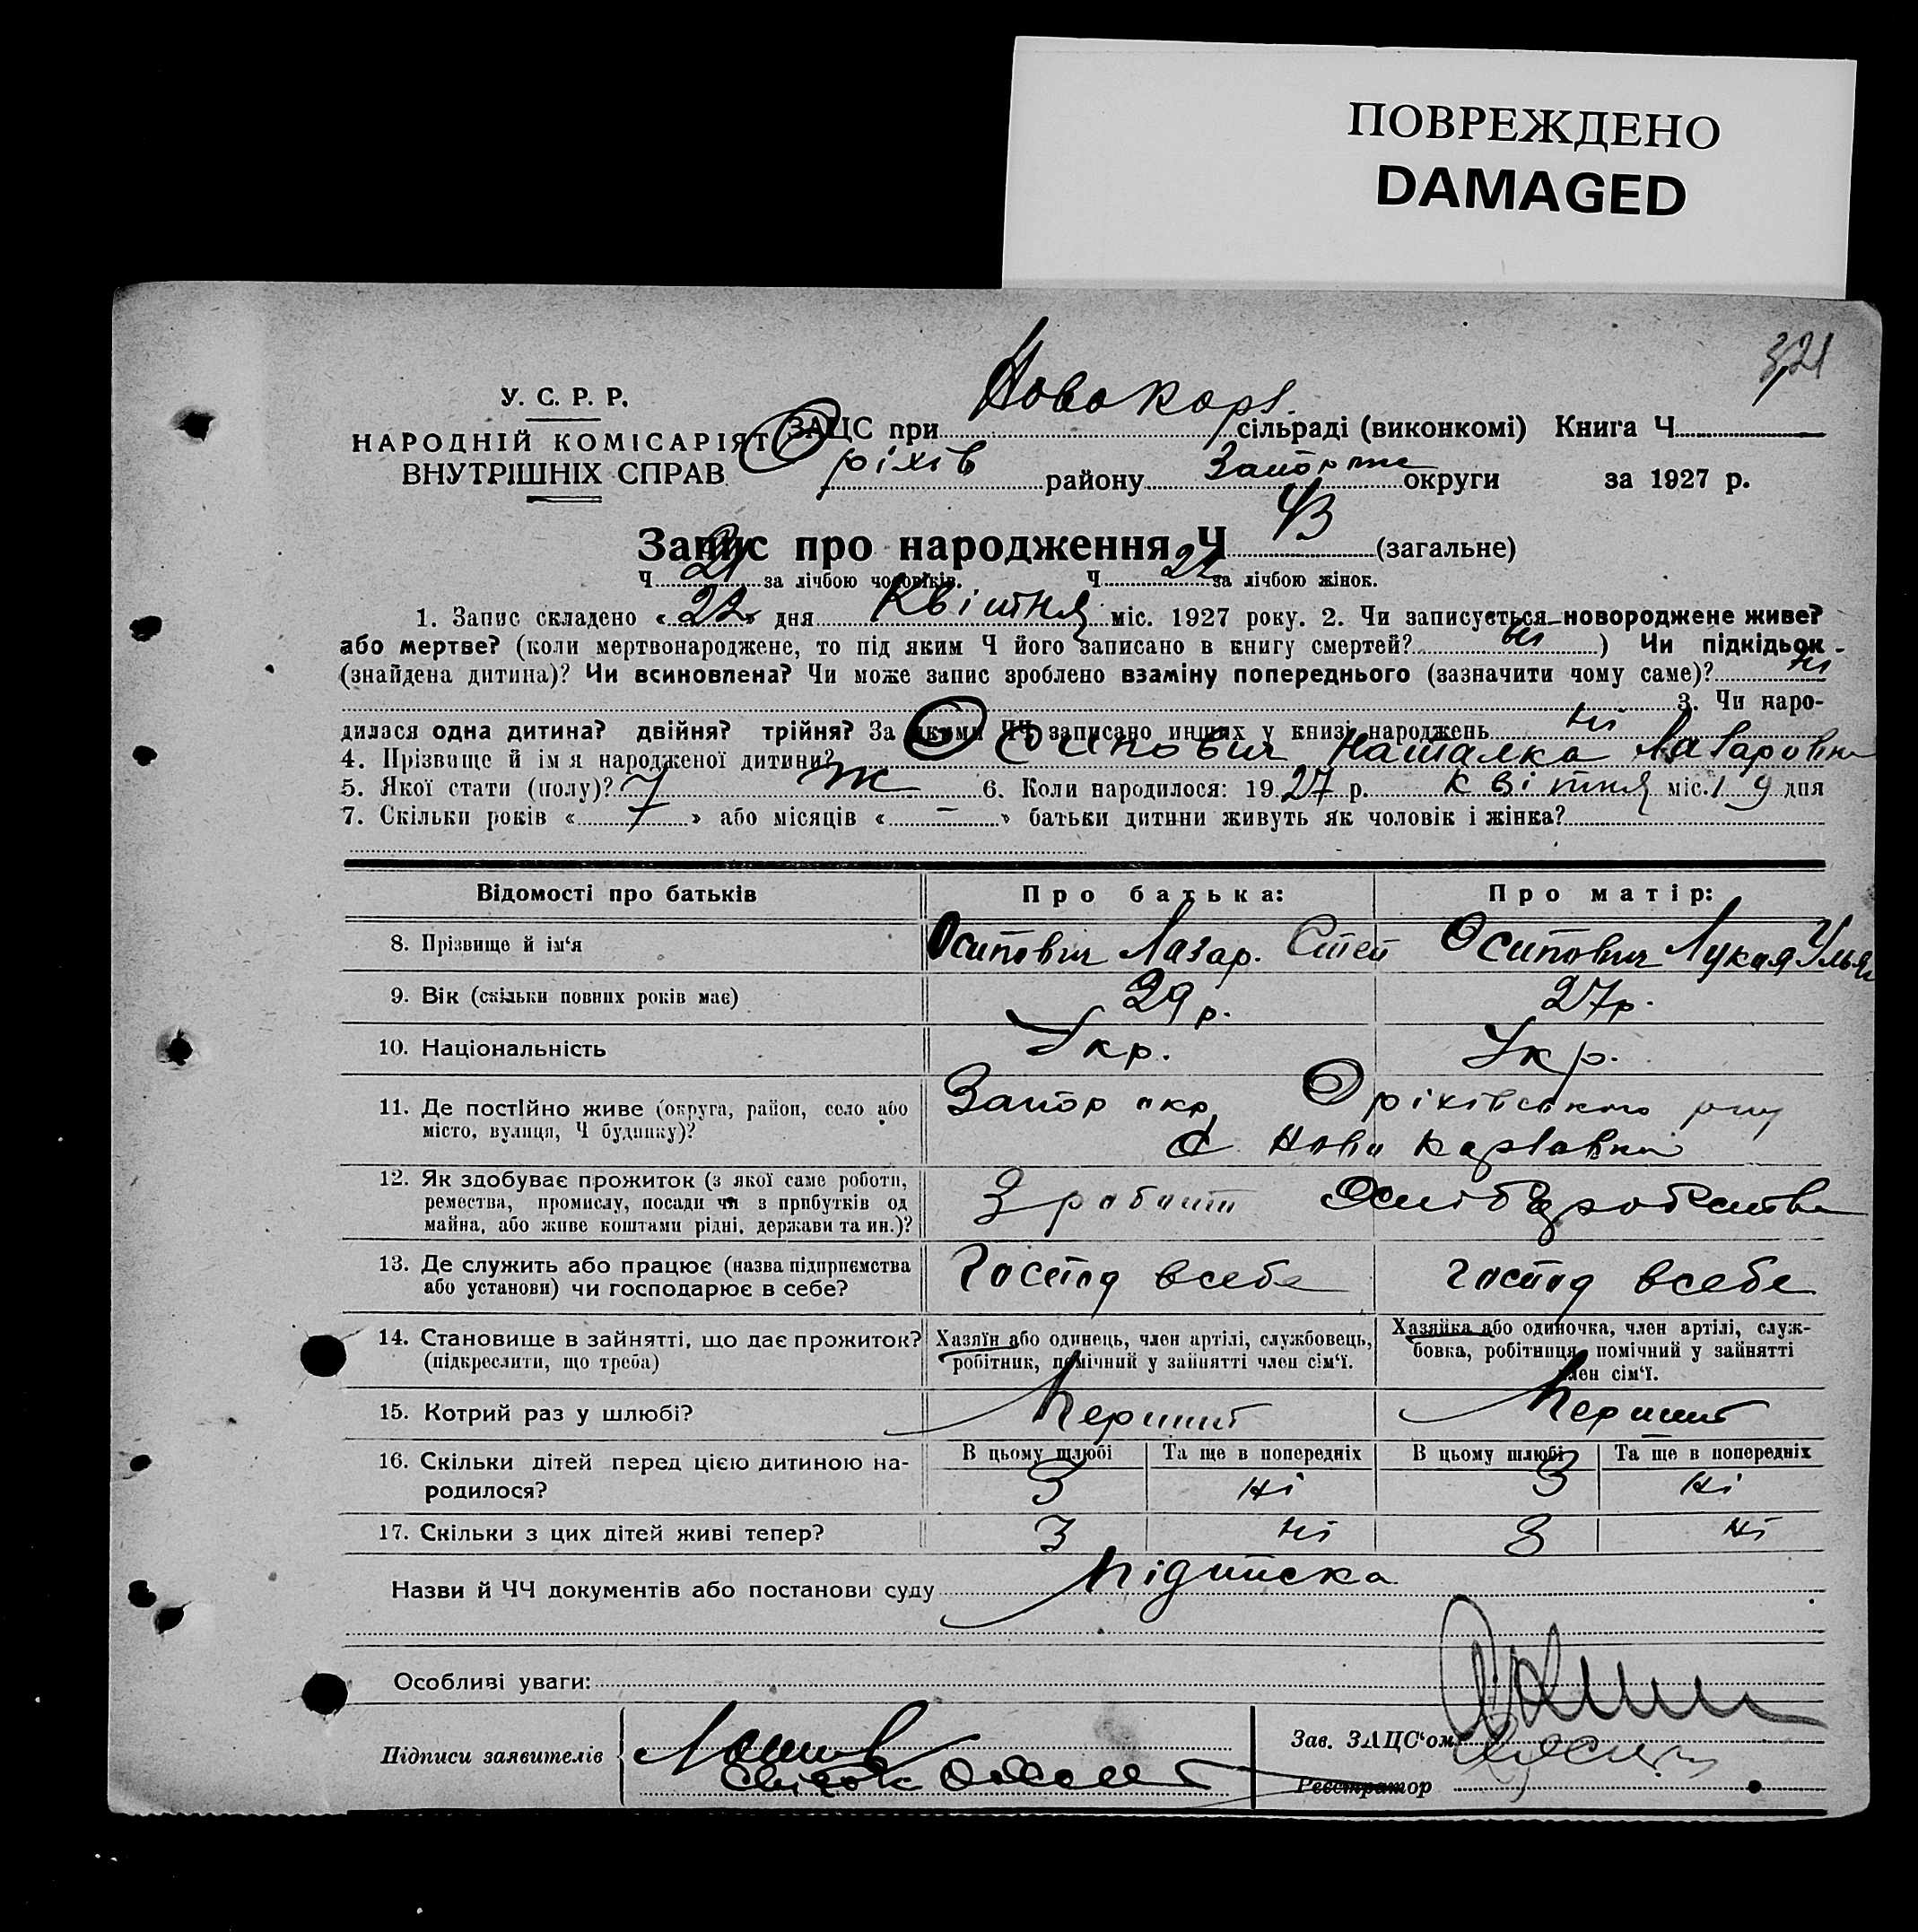 ПОВРЕЖДЕНО
DAMAGED
321
У. С. Р. Р.
НАРОДНІЙ КОМІСАРІЯТ
ВНУТРІШНІХ СПРАВ
ЗАЦС при Новокарл. сільраді (виконкомі) Книга Ч.
Оріхів району Запоріж округи за 1927 р.
Запис про народження Ч 43 (загальне)
Ч 21 за лічбою чоловіків. Ч 22 за лічбою жінок.
1. Запис складено «22» дня Квітня міс. 1927 року. 2. Чи записується новороджене живе?
або мертве? (коли мертвонароджене, то під яким Ч його записано в книгу смертей? ні ) Чи підкідьок -
(знайдена дитина)? Чи всиновлена? Чи може запис зроблено взаміну попереднього (зазначити чому саме)? ні
3. Чи наро-
дилася одна дитина? двійня? трійня? За якими ЧЧ записано инших у книзі народжень ні
4. Прізвище й ім я народженої дитини? Осипович Наталка Лазаровна
5. Якої стати (полу)? ж 6. Коли народилося: 1927 р. квітня міс. 19 дня
7. Скільки років « 7 » або місяців « – » батьки дитини живуть як чоловік і жінка?
Відомості про батьків Про батька: Про матір:
8. Прізвище й ім‘я Осипович Лазар. Степ Осипович Лукая Улья
9. Вік (скільки повних років має) 29 р. 27 р.
10. Національність Укр. Укр.
11. Де постійно живе (округа, район, село або Запор окр, Оріхівського р-ну
місто, вулиця, Ч будинку)? с Ново Карлавка
12. Як здобуває прожиток (з якої саме роботи,
ремества, промислу, посади чи з прибутків од З работи
майна, або живе коштами рідні, держави та ин.)?
13. Де служить або працює (назва підприємства Господ всебе господ всебе
або установи) чи господарює в себе?
14. Становище в зайнятті, що дає прожиток? Хазяїн або одинець, член артілі, службовець, Хазяйка або одиночка, член артілі, служ-
(підкреслити, що треба) робітник, помічний у зайнятті член сім‘ї. бовка, робітниця, помічний у зайнятті
член сім‘ї.
15. Котрий раз у шлюбі? Перший Перший
16. Скільки дітей перед цією дитиною на- В цьому шлюбі Та ще в попередніх В цьому шлюбі Та ще в попередніх
родилося? 3 ні 3 ні
17. Скільки з цих дітей живі тепер? 3 ні 3 ні
Назви й ЧЧ документів або постанови суду Підписка
Особливі уваги:
Підписи заявителів
Зав. ЗАЦС‘ом
Свідок
Реєстратор